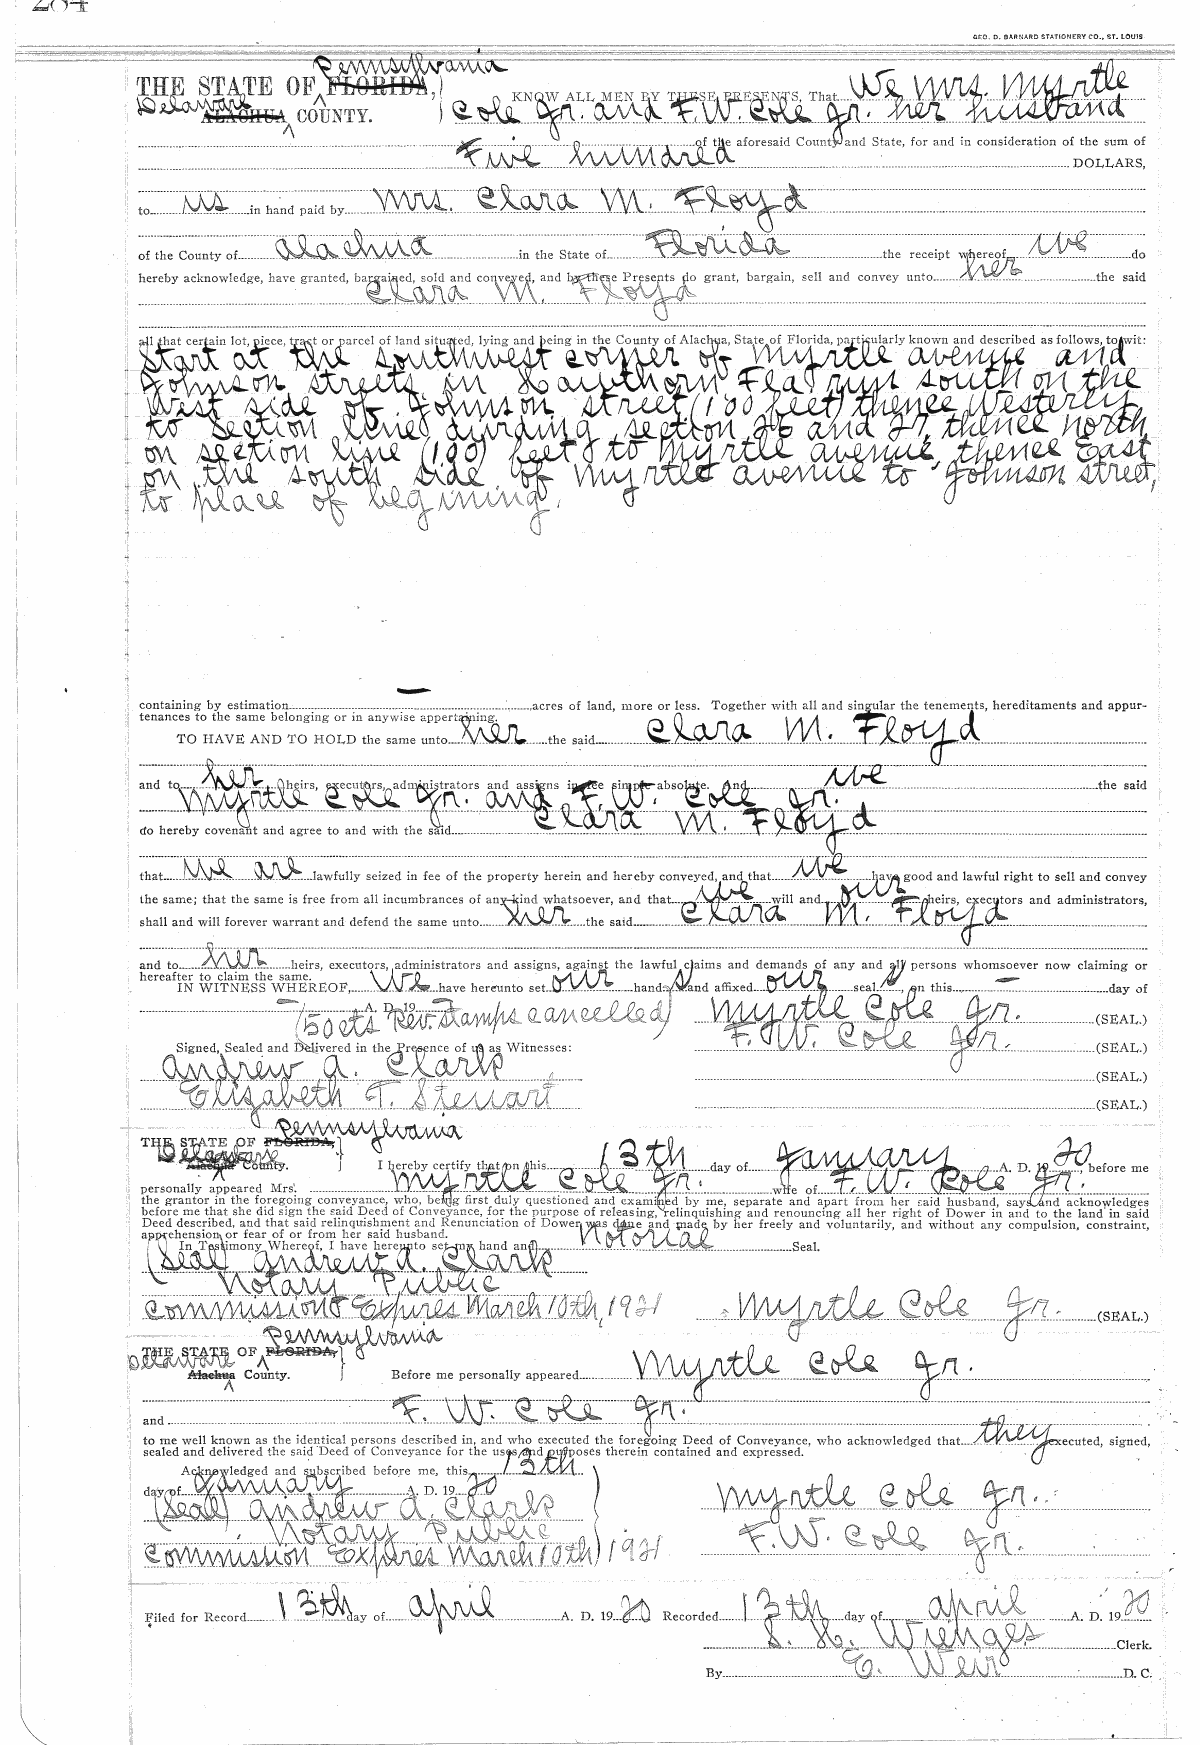 GEO. D. BARNARD STATIONERY CO., ST. LOUIS
Pennsylvania
THE STATE OF FLORIDA,
Delaware
ALACHUA COUNTY.
KNOW ALL MEN BY THESE PRESENTS, That We Mrs. Myrtle
Cole Jr. and F. W. Cole Jr. her husband
of the aforesaid County and State, for and in consideration of the sum of
Five hundred DOLLARS,
to us in hand paid by Mrs. Clara M. Floyd
of the County of Alachua in the State of Florida the receipt whereof we do
hereby acknowledge, have granted, bargained, sold and conveyed, and by these Presents do grant, bargain, sell and convey unto her the said
Clara M. Floyd
all that certain lot, piece, tract or parcel of land situated, lying and being in the County of Alachua, State of Florida, particularly known and described as follows, to wit:
Start at the southwest corner of Myrtle avenue and
Johnson streets in Hawthorn Fla. run south on the
West side of Johnson street (100 feet) thence Westerly
to section line dividing section 26 and 27, thence north
on section line (100) feet to Myrtle avenue, thence East
on the south side of Myrtle avenue to Johnson street,
to place of begining.
containing by estimation — acres of land, more or less. Together with all and singular the tenements, hereditaments and appur-
tenances to the same belonging or in anywise appertaining.
TO HAVE AND TO HOLD the same unto her the said Clara M. Floyd
and to her heirs, executors, administrators and assigns in fee simple absolute. And we the said
Myrtle Cole Jr. and F. W. Cole Jr.
do hereby covenant and agree to and with the said Clara M. Floyd
that we are lawfully seized in fee of the property herein and hereby conveyed, and that we have good and lawful right to sell and convey
the same; that the same is free from all incumbrances of any kind whatsoever, and that we will and our heirs, executors and administrators,
shall and will forever warrant and defend the same unto her the said Clara M. Floyd
and to her heirs, executors, administrators and assigns, against the lawful claims and demands of any and all persons whomsoever now claiming or
hereafter to claim the same.
IN WITNESS WHEREOF, We have hereunto set our hands and affixed our seals, on this — day of
— A. D. 19
(50 cts Rev. Stamps cancelled) Myrtle Cole Jr. (SEAL.)
F. W. Cole Jr. (SEAL.)
Signed, Sealed and Delivered in the Presence of us as Witnesses:
Andrew A. Clark (SEAL.)
Elizabeth T. Stewart (SEAL.)
Pennsylvania
THE STATE OF FLORIDA,
Delaware
Alachua County.
I hereby certify that on this 13th day of January A. D. 1920 before me
personally appeared Mrs. Myrtle Cole Jr. wife of F. W. Cole Jr.
the grantor in the foregoing conveyance, who, being first duly questioned and examined by me, separate and apart from her said husband, says and acknowledges
before me that she did sign the said Deed of Conveyance, for the purpose of releasing, relinquishing and renouncing all her right of Dower in and to the land in said
Deed described, and that said relinquishment and Renunciation of Dower was done and made by her freely and voluntarily, and without any compulsion, constraint,
apprehension or fear of or from her said husband.
In Testimony Whereof, I have hereunto set my hand and Notorial Seal.
(Seal) Andrew A. Clark
Notary Public
Commission Expires March 10th, 1921 Myrtle Cole Jr. (SEAL.)
Pennsylvania
THE STATE OF FLORIDA,
Delaware
Alachua County.
Before me personally appeared Myrtle Cole Jr.
and F. W. Cole Jr.
to me well known as the identical persons described in, and who executed the foregoing Deed of Conveyance, who acknowledged that they executed, signed,
sealed and delivered the said Deed of Conveyance for the uses and purposes therein contained and expressed.
Acknowledged and subscribed before me, this 13th
day of January A. D. 1920
(Seal) Andrew A. Clark
Myrtle Cole Jr.
Notary Public
F. W. Cole Jr.
Commission Expires March 10th, 1921
Filed for Record 13th day of April A. D. 1920 Recorded 13th day of April A. D. 1920
S. H. Wienges Clerk.
By E. Weir D. C.